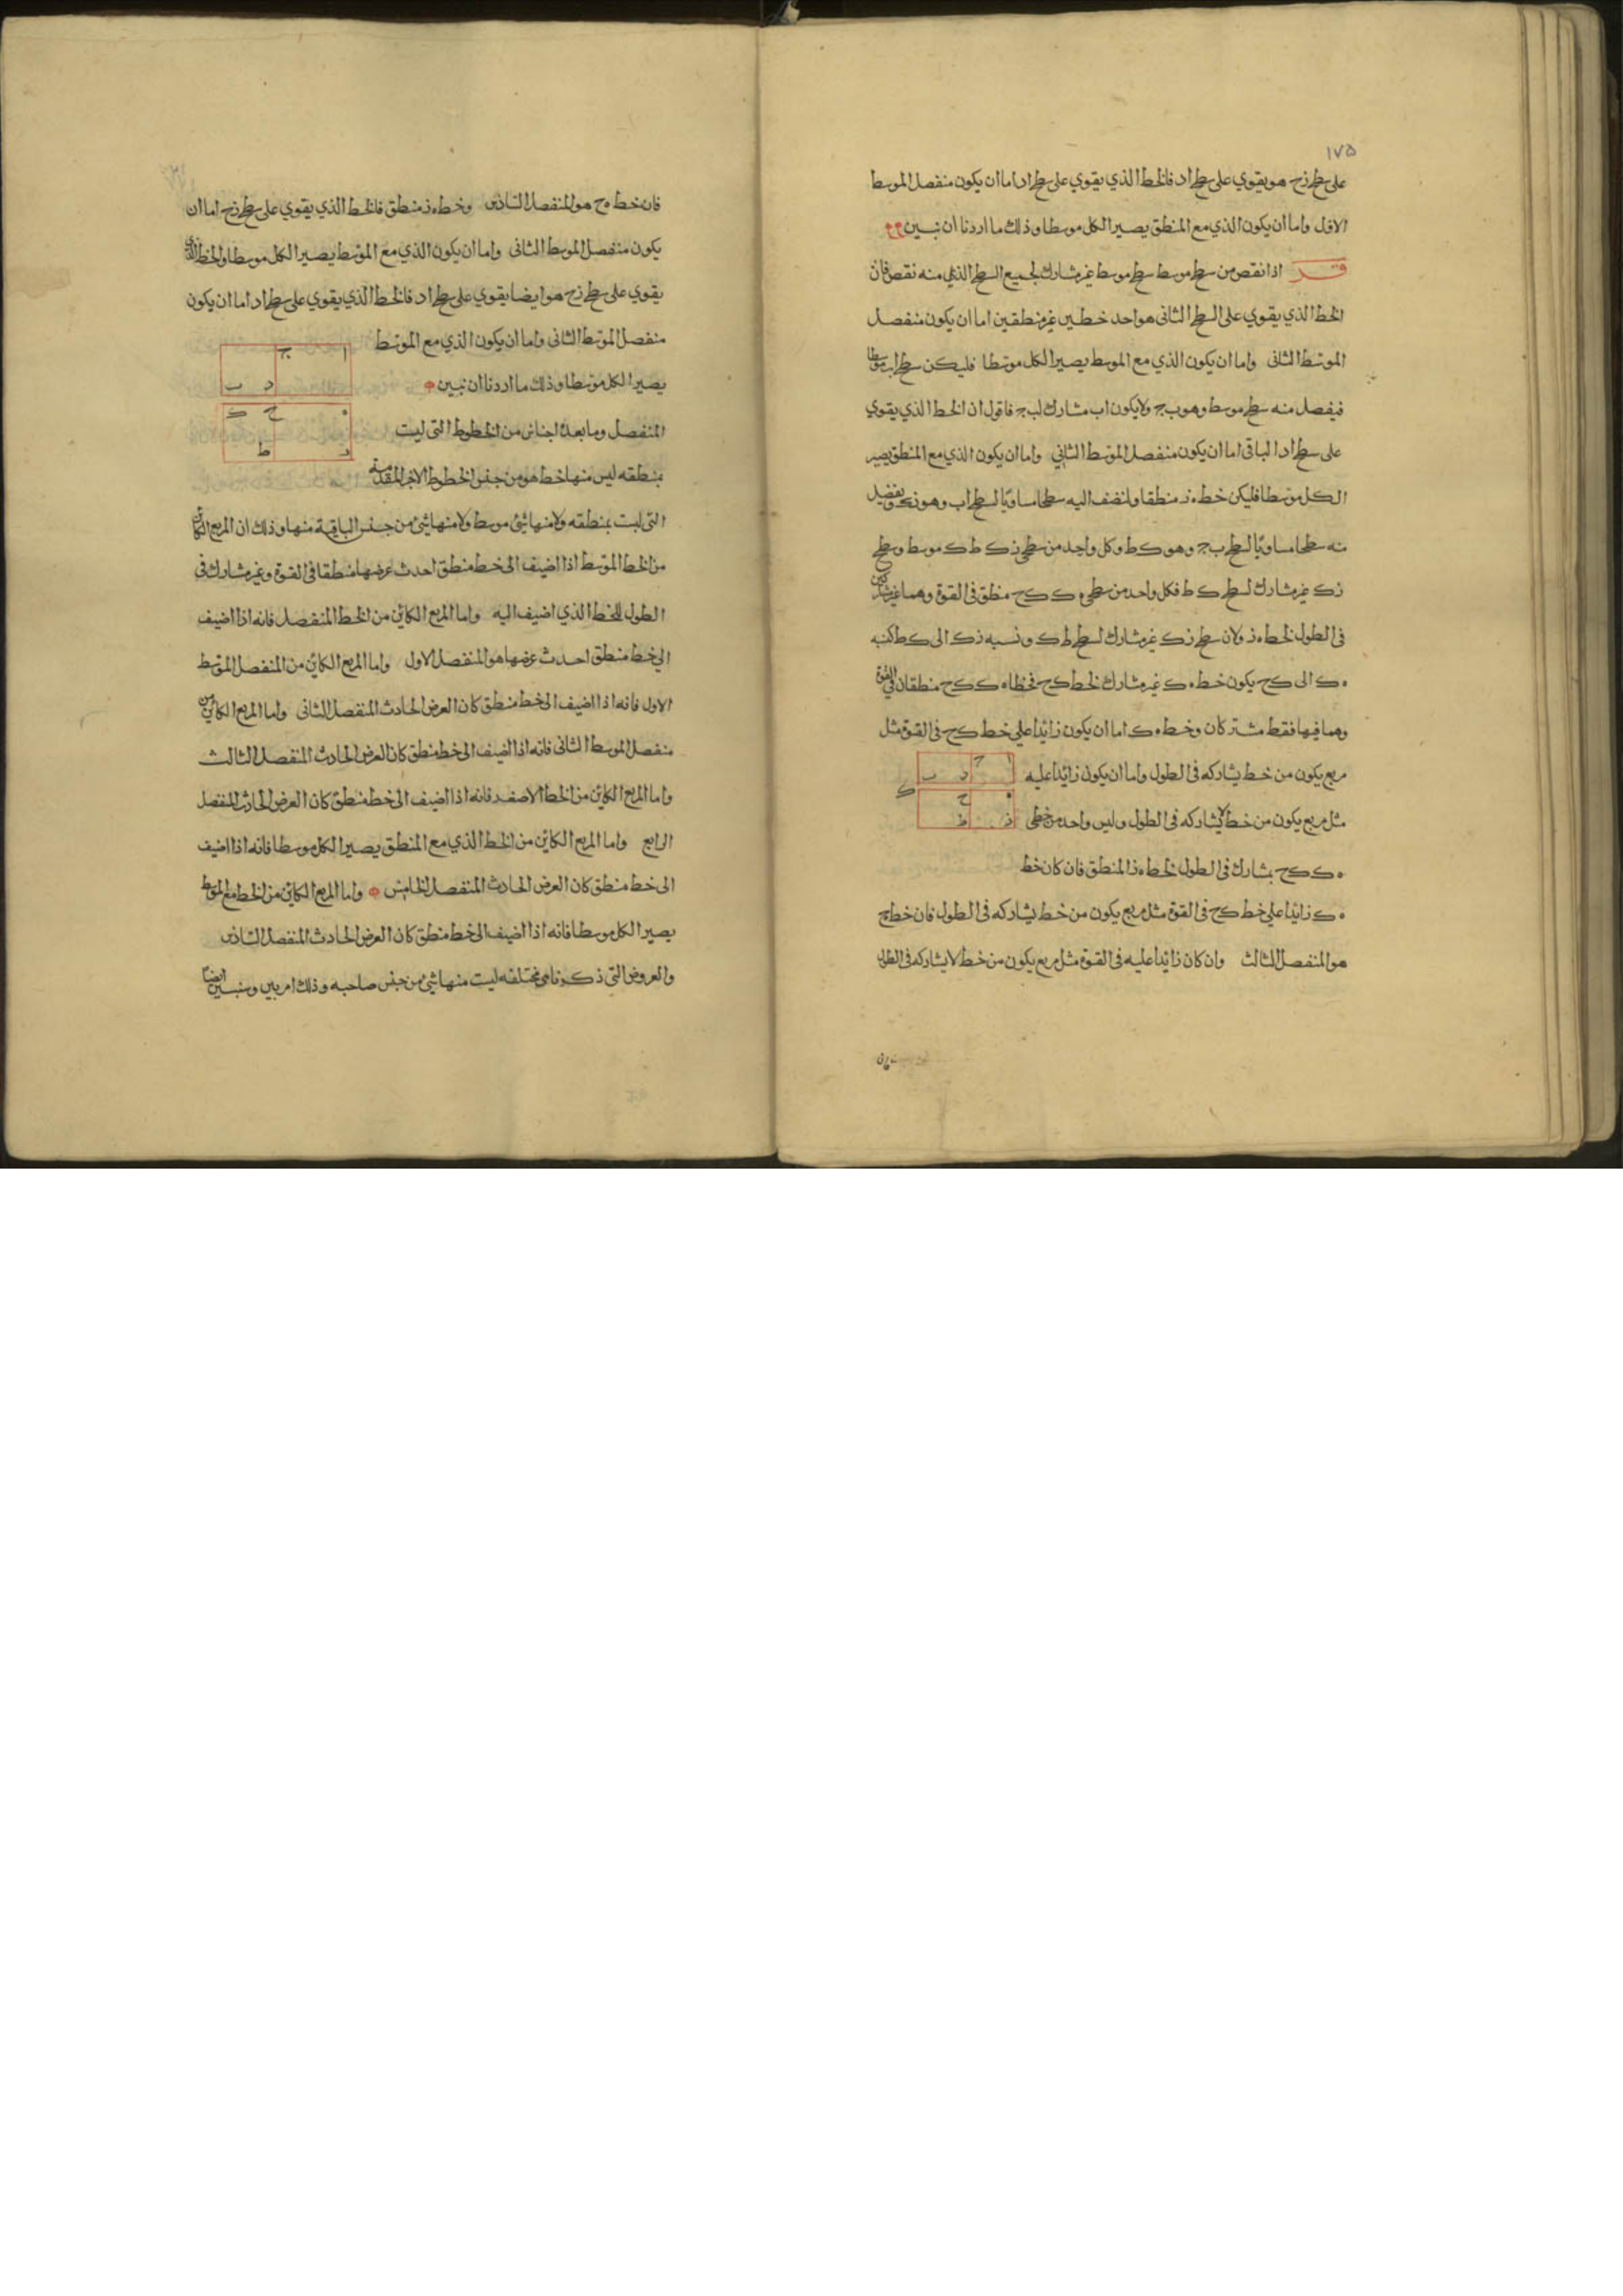 ١٧٥
على سطح زح هو يقوي على سطح اد فالخط الذي يقوي على سطح اد اما ان يكون منفصل الموسط
الاول واما ان يكون الذي مع المنطق يصير الكل موسطا وذلك ما اردنا ان نبين
قد اذا نقص من سطح موسط سطح موسط غير مشارك لجميع السطح الذي منه نقص فان
الخط الذي يقوي على السطح الثانى هو احد خطين غير منطقين اما ان يكون منفصل
الموسط الثانى واما ان يكون الذي مع الموسط يصير الكل موسطا فليكن سطح اب موسطا
فيفصل منه سطح موسط وهو ب ج ولا يكون اب مشارك لب ج فاقول ان الخط الذي يقوي
على سطح اد الباقى اما ان يكون منفصل الموسط الثاني واما ان يكون الذي مع المنطق يصير
الكل موسطا فليكن خط ه ز منطقا ولنضف اليه سطحا مساويا لسطح اب وهو زك ويفصل
منه سطحا مساويا لسطح ب ج وهو ك ط وكل واحد من سطحي زك ط ك موسط وسطح
زك غير مشارك لسطح ك ط فكل واحد من سطحي ه ك ك ح منطق فى القوة وهما غير مشاركين
فى الطول لخط ه ز ولان سطح زك غير مشارك لسطح ط ك ونسبه زك الى ك ط كنسبه
ه ك الى ك ح يكون خط ه ك غير مشارك لخط ك ح فخطا ه ك ك ح منطقان في القوة
وهما فيها فقط مشتركان وخط ه ك اما ان يكون زائدا علي خط ك ح فى القوة مثل
مربع يكون من خط يشاركه فى الطول واما ان يكون زائدا عليه
مثل مربع يكون من خط لا يشاركه فى الطول وليس واحد من خطى
ه ك ك ح بمشارك فى الطول لخط ه ز المنطق فان كان خط
ه ك زائدا علي خط ك ح فى القوة مثل مربع يكون من خط يشاركه فى الطول فان خط ه ح
هو المنفصل الثالث وان كان زائدا عليه فى القوة مثل مربع يكون من خط لا يشاركه فى الطول
ا ج د ب
ه ح ك ز ط
فان
فان خط ه ح هو المنفصل السادس وخط ه ز منطق فالخط الذي يقوي على سطح زح اما ان
يكون منفصل الموسط الثانى واما ان يكون الذي مع الموسط يصير الكل موسطا والخط الذي
يقوي على سطح زح هو ايضا يقوي على سطح اد فالخط الذي يقوي على سطح اد اما ان يكون
منفصل الموسط الثانى واما ان يكون الذي مع الموسط
يصير الكل موسطا وذلك ما اردنا ان نبين
ا ج د ب
ه ح ك ز ط
المنفصل وما بعده اجناس من الخطوط التى ليست
بمنطقه ليس منها خط هو من جنس الخطوط الاخر المقدمة
التى ليست بمنطقه ولا منها شئ موسط ولا منها شئ من جنس الباقية منها وذلك ان المربع الكائن
من الخط الموسط اذا اضيف الى خط منطق احدث عرضها منطقا فى القوة وغير مشارك فى
الطول للخط الذي اضيف اليه واما المربع الكائن من الخط المنفصل فانه اذا اضيف
الي خط منطق احدث عرضها هو المنفصل الاول واما المربع الكائن من المنفصل الموسط
الاول فانه اذا اضيف الى خط منطق كان العرض الحادث المنفصل الثانى واما المربع الكائن من
منفصل الموسط الثانى فانه اذا اضيف الى خط منطق كان العرض الحادث المنفصل الثالث
واما المربع الكائن من الخط الاصغر فانه اذا اضيف الى خط منطق كان العرض الحادث المنفصل
الرابع واما المربع الكائن من الخط الذي مع المنطق يصير الكل موسطا فانه اذا اضيف
الى خط منطق كان العرض الحادث المنفصل الخامس واما المربع الكائن من الخط مع الموسط
يصير الكل موسطا فانه اذا اضيف الى خط منطق كان العرض الحادث المنفصل السادس
والعروض التى ذكرناها مختلفه ليست منها شئ من جنس صاحبه وذلك امر بين وسنبين ايضا